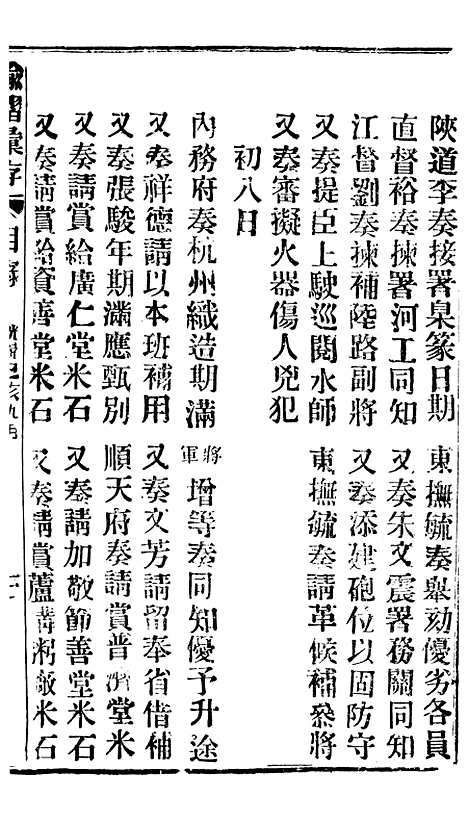 陝道李奏接署臬篆日期　東撫毓奏舉劾優劣各員
直督裕奏揀署河工同知　又奏朱文震署務關同知
江督劉奏揀補陸路副將　又奏添建砲位以固防守
又奏提臣上駛巡閱水師　東撫毓奏請革候補叅將
又奏審擬火器傷人兇犯
初八日
內務府奏杭州織造期滿　將軍增等奏同知優予升途
又奏祥德請以本班補用　又奏文芳請留奉省借補
又奏張駿年期滿應甄別　順天府奏請賞普濟堂米
又奏請賞給廣仁堂米石　又奏請加敬節善堂米石
又奏請賞給資善堂米石　又奏請賞蘆溝粥廠米石
諭摺彙存　目錄　光緒己亥九月